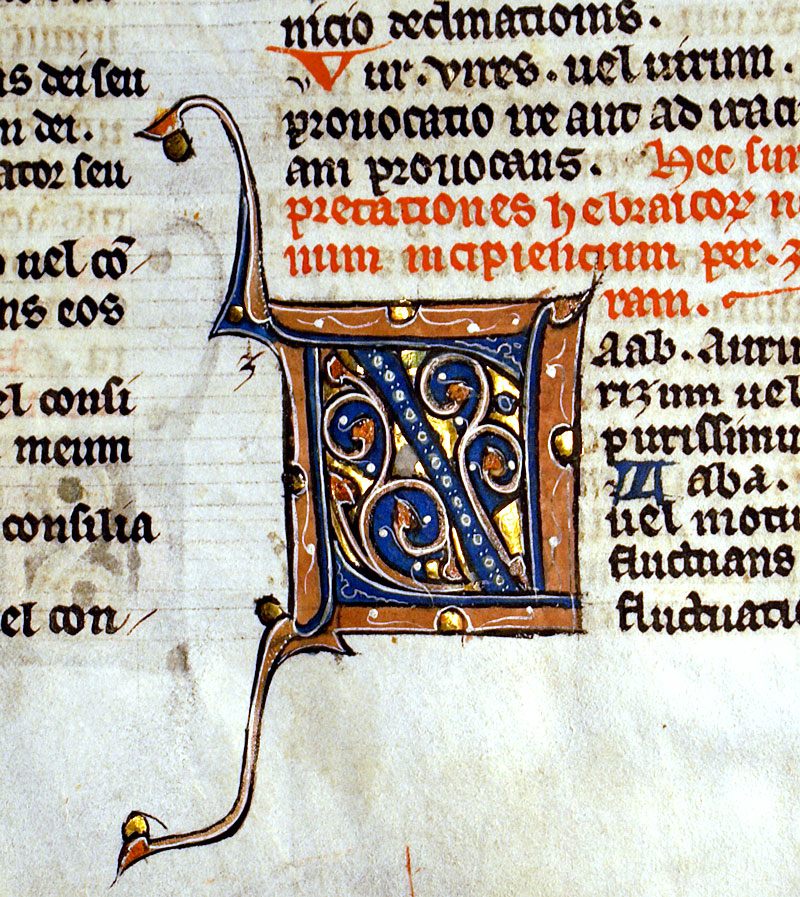 is dei seu
n dei.
ator seu
o uel cō
ns eos
el consi
meum
consilia
el con
nicio declinationis.
Vur. vires. uel uirum.
prouocatio ire aut ad iraci
am prouocans. Hec sun
pretationes hebraicoꝝ n
num incipiencium per. z
ram.
z
Zaab. Auru
rizum uel
purissimu
Zaba.
uel motu
fluctuans
fluctuatio